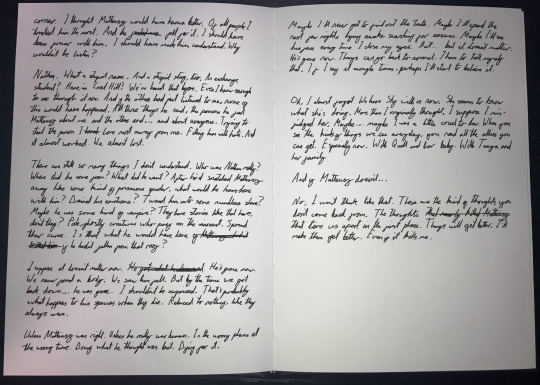 corner. I thought Matteusz would have known better. Of all people I
trusted him the most. And he fell for it. I should have
been firmer with him. I should have made him understand. Why
wouldn't he listen?
Nathan. What a stupid name. And a stupid story, too. An exchange
student? Here, in Coal Hill? We've heard that before. Even I knew enough
to see through it now. And if the others had just listened to me, none of
this would have happened. All those things he said, the poison he put in
Matteusz about me and the others and... and about everyone. Trying to
steal the person I love most away from me. Filling him with hate. And
it almost worked. We almost lost.
There are still so many things I don't understand. Who was Nathan really?
Where did he come from? What did he want? After he'd snatched Matteusz
away like some kind of poisonous spider, what would he have done
with him? Drained his emotions? Turned him into some mindless slave?
Maybe he was some kind of vampire? They have stories like that here,
don't they? Pale ghostly creatures who prey on the innocent. Spread
their curse. Is that what he would have done if
he hadn't fallen from that roof?
I suppose it doesn't matter now. He He's gone now.
We never found a body. We saw him fall. But by the time we got
back down... he was gone. I shouldn't be surprised. That's probably
what happens to his species when they die. Reduced to nothing, like they
always were.
Unless Matteusz was right. Unless he really was human. In the wrong place at
the wrong time. Doing what he thought was best. Dying for it.
Maybe I'll never get to find out the truth. Maybe I'll spend the
next few nights lying awake searching for answers. Maybe I'll see
his face every time I close my eyes. But... but it doesn't matter.
He's gone now. Things can go back to normal. I have to tell myself
that. If I say it enough times, perhaps I'll start to believe it.
Oh, I almost forgot. We have Sky with us now. She seems to know
what she's doing. More than I originally thought, I suppose. I mis-
judged her. Maybe... maybe I was a little cruel to her. When you
see the kinds of things we see everyday, you need all the allies you
can get. Especially now. With Quill and her baby. With Tanya and
her family.
And if Matteusz doesn't...
No, I won't think like that. Those are the kind of thoughts you
don't come back from. The thoughts that nearly killed Matteusz
that tore us apart in the first place. Things will get better. I'll
make them get better. Even if it kills me.